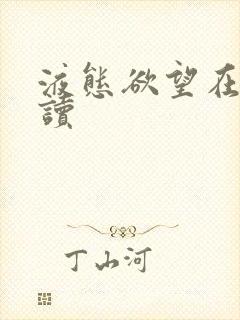 液態欲望在
讀
丁山河